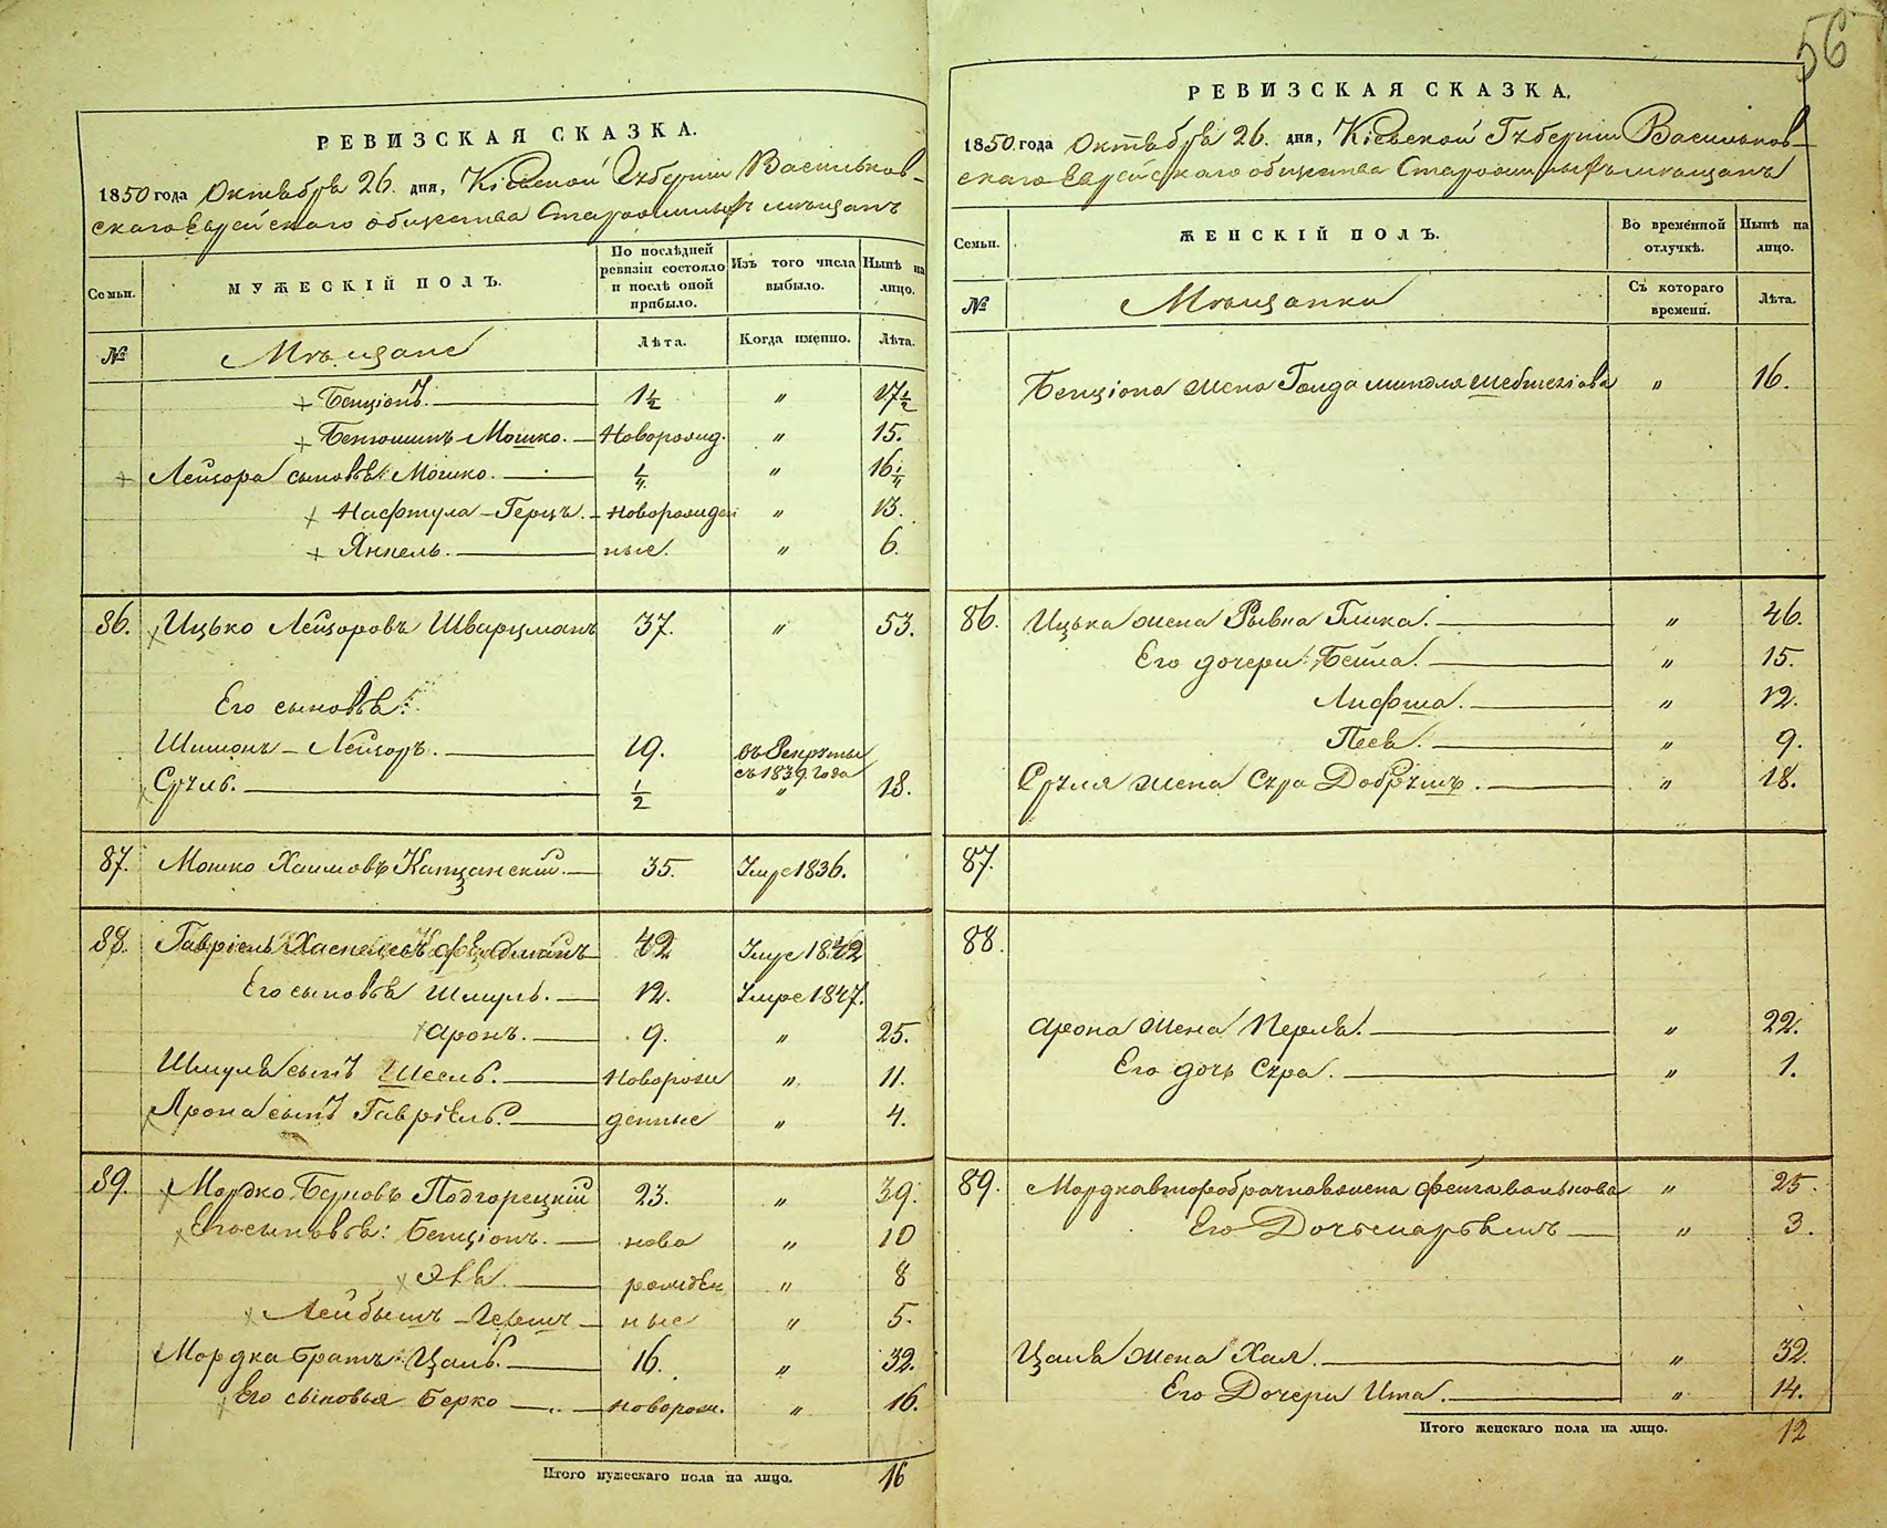 56
РЕВИЗСКАЯ СКАЗКА.
1850 года Октября 26. дня, Кіевской Губерніи Васильков-
скаго Еврейскаго общества Старожилыхъ мѣщанъ
Семьи.
МУЖЕСКІЙ ПОЛЪ.
По послѣдней ревизіи состояло и послѣ оной прибыло.
Изъ того числа выбыло.
Нынѣ на лицо.
№
Мѣщане
Лѣта.
Когда именно.
Лѣта.
Бенціонъ. 1½ " 17½
Бенюминъ-Мошко. Новорожд. " 15.
Лейзора сыновья: Мошко. ¼ " 16¼
Нафтула-Герцъ. Новорожден " 13.
Янкель. ные. " 6.
86. Ицько Лейзоровъ Шварцманъ 37. " 53.
Его сыновья:
Шимонъ-Лейзоръ. 19. въ Рекруты съ 1839 года
Сруль. ½ " 18.
87. Мошко Хаимовъ 35. Умре 1836.
88. Гавріель 42 Умре 1842
Его сыновья Шмуль. 12. Умре 1847.
Аронъ. 9. " 25.
Шмуля сынъ Шеель. Новорож " 11.
Арона сынъ Гавріель. денные " 4.
89. Мордко Берковъ Подгорецкій 23. " 39.
Его сыновья: Бенціонъ. ново " 10
Эля. рожден " 8
Лейбышъ-Гершъ ные " 5.
Мордка братъ: Цаль. 16. " 32.
Его сыновья Берко новорож. " 16.
Итого мужескаго пола на лицо. 16
РЕВИЗСКАЯ СКАЗКА.
1850 года Октября 26. дня, Кіевской Губерніи Васильков-
скаго Еврейскаго общества Старожилыхъ мѣщанъ
Семьи.
ЖЕНСКІЙ ПОЛЪ.
Во временной отлучкѣ.
Нынѣ на лицо.
№
Мѣщанки
Съ котораго времени.
Лѣта.
Бенціона жена Голда " 16.
86. Ицька жена Рывка Глика. " 46.
Его дочери: Бейла. " 15.
Лифша. " 12.
Песя. " 9.
Сруля жена Сура Добрышъ. " 18.
87.
88.
Арона жена Перля. " 22.
Его дочь Сура. " 1.
89. Мордка второбрачная жена Фейга Волькова " 25.
Его Дочь " 3.
Цаля жена Хая. " 32
Его Дочери Ита. " 14.
Итого женскаго пола на лицо. 12